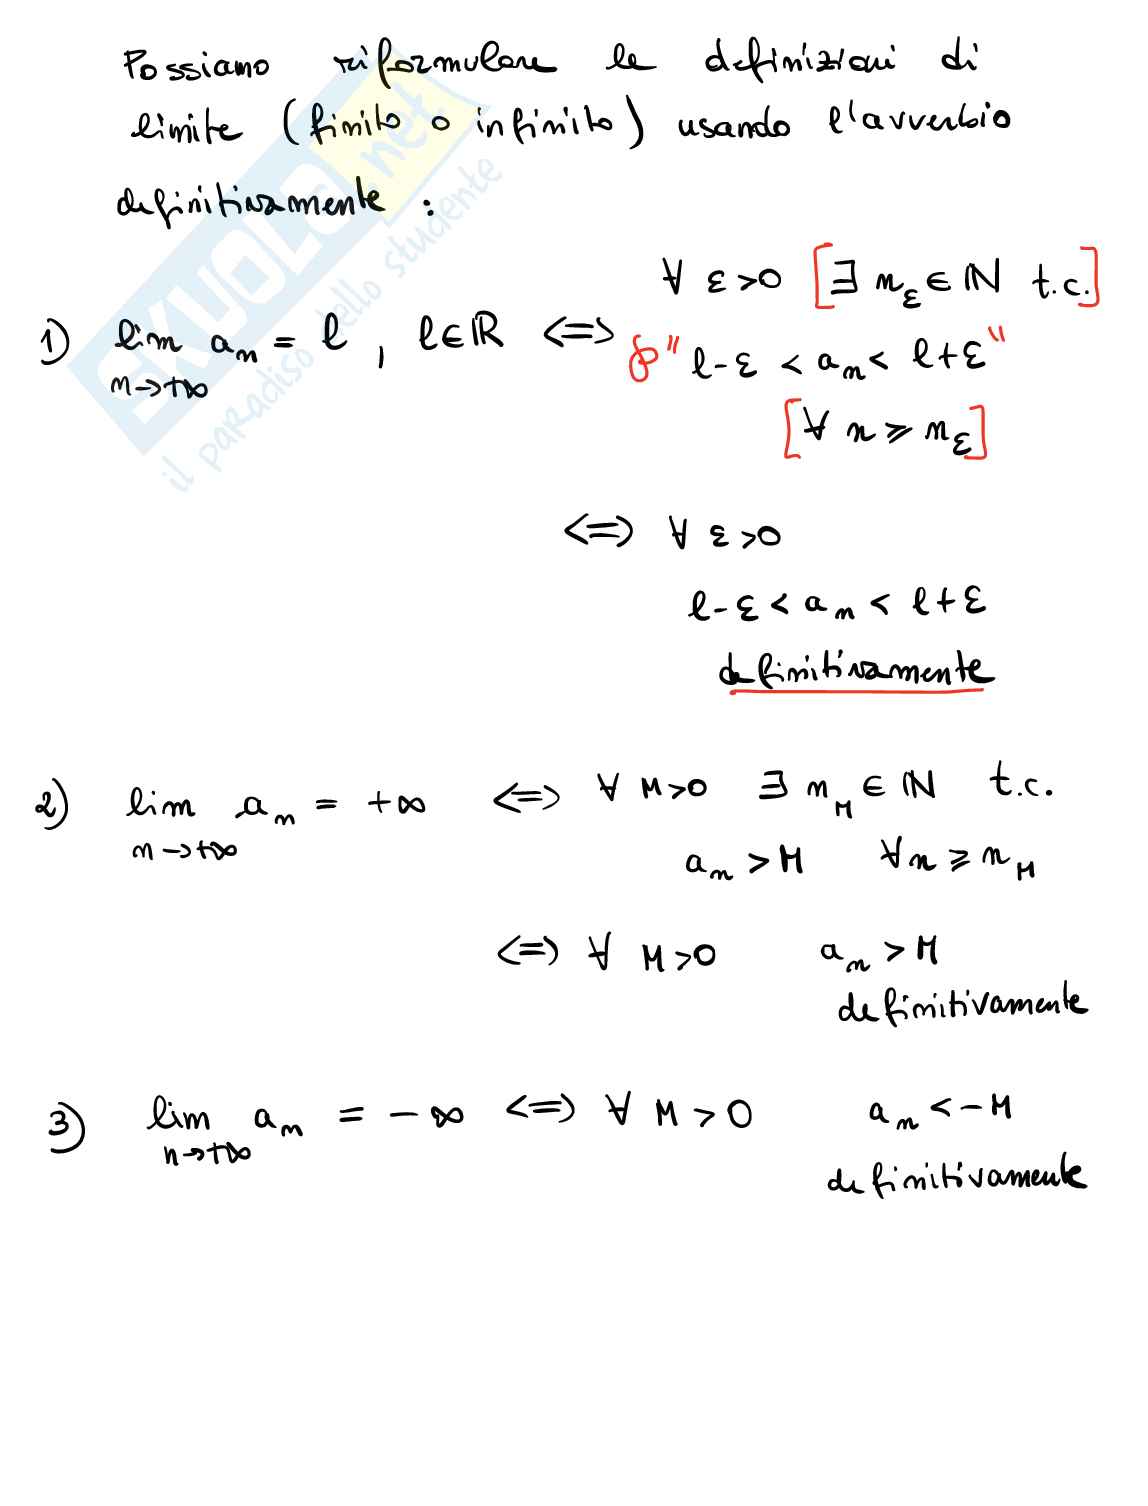 Possiamo riformulare le definizioni di
limite (finito o infinito) usando l'avverbio
definitivamente :
∀ ε>0 [∃ n_ε ∈ ℕ t.c.]
1) lim a_n = l , l∈ℝ ⟺
n→+∞
℘ " l-ε < a_n < l+ε "
[∀ n ⩾ n_ε]
⟺ ∀ ε>0
l-ε < a_n < l+ε
definitivamente
2) lim a_n = +∞ ⟺ ∀ M>0 ∃ n_M ∈ ℕ t.c.
n→+∞
a_n > M ∀n ⩾ n_M
⟺ ∀ M>0 a_n > M
definitivamente
3) lim a_n = -∞ ⟺ ∀ M > 0 a_n < -M
n→+∞
definitivamente
SKUOLA.net
il paradiso dello studente